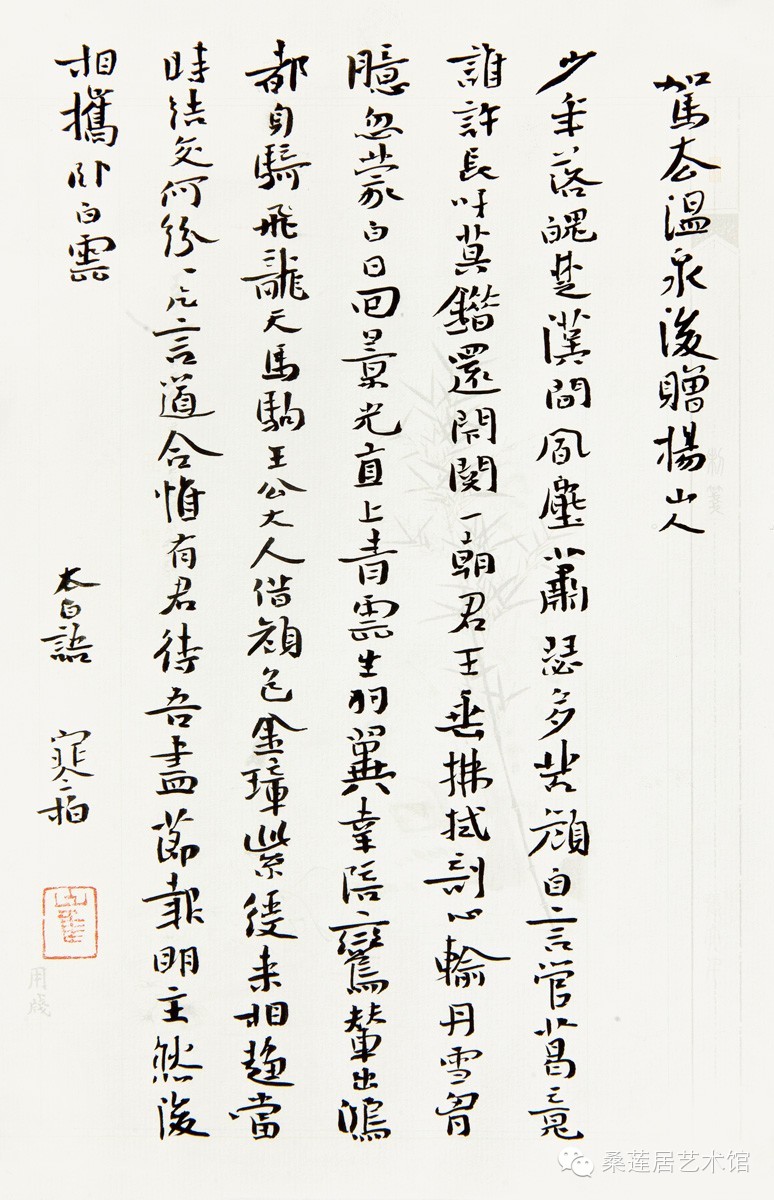 駕去溫泉後贈楊山人
少年落魄楚漢間風塵蕭瑟多苦顏自言管葛竟
誰許長吁莫錯還閉關一朝君王垂拂拭剖心輸丹雪胸
臆忽蒙白日回景光直上青雲生羽翼幸陪鸞輦出鴻
都身騎飛龍天馬駒王公大人借顏色金璋紫綬來相趨當
時結交何紛々片言道合惟有君待吾盡節報明主然後
相攜臥白雲
太白語 寒柏
用牋
桑莲居艺术馆